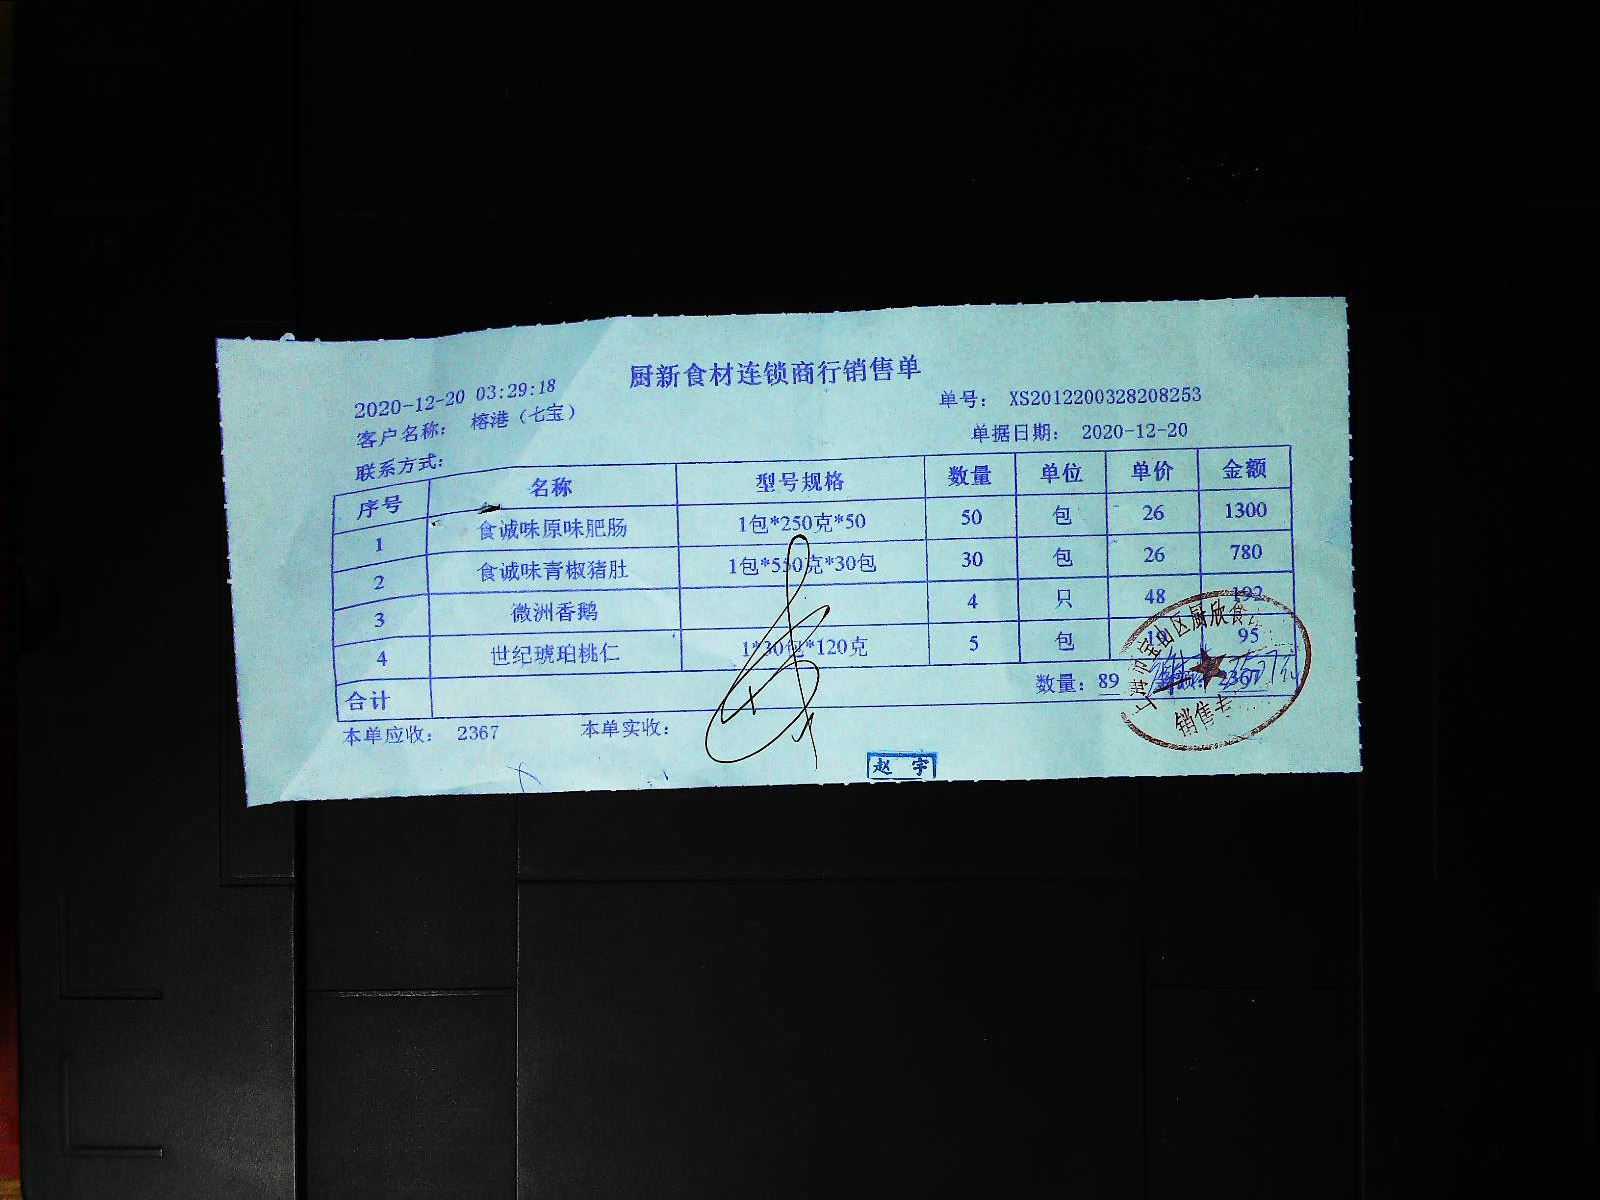 厨新食材连锁商行销售单
2020-12-20 03:29:18
单号： XS2012200328208253
客户名称： 榕港（七宝）
单据日期： 2020-12-20
联系方式：
序号 名称 型号规格 数量 单位 单价 金额
1 食诚味原味肥肠 1包*250克*50 50 包 26 1300
2 食诚味青椒猪肚 1包*550克*30包 30 包 26 780
3 微洲香鹅 4 只 48 192
4 世纪琥珀桃仁 1*30包*120克 5 包 95
合计 数量：89 2367
本单应收： 2367 本单实收：
赵 宇
宝山区厨欣食
销售专